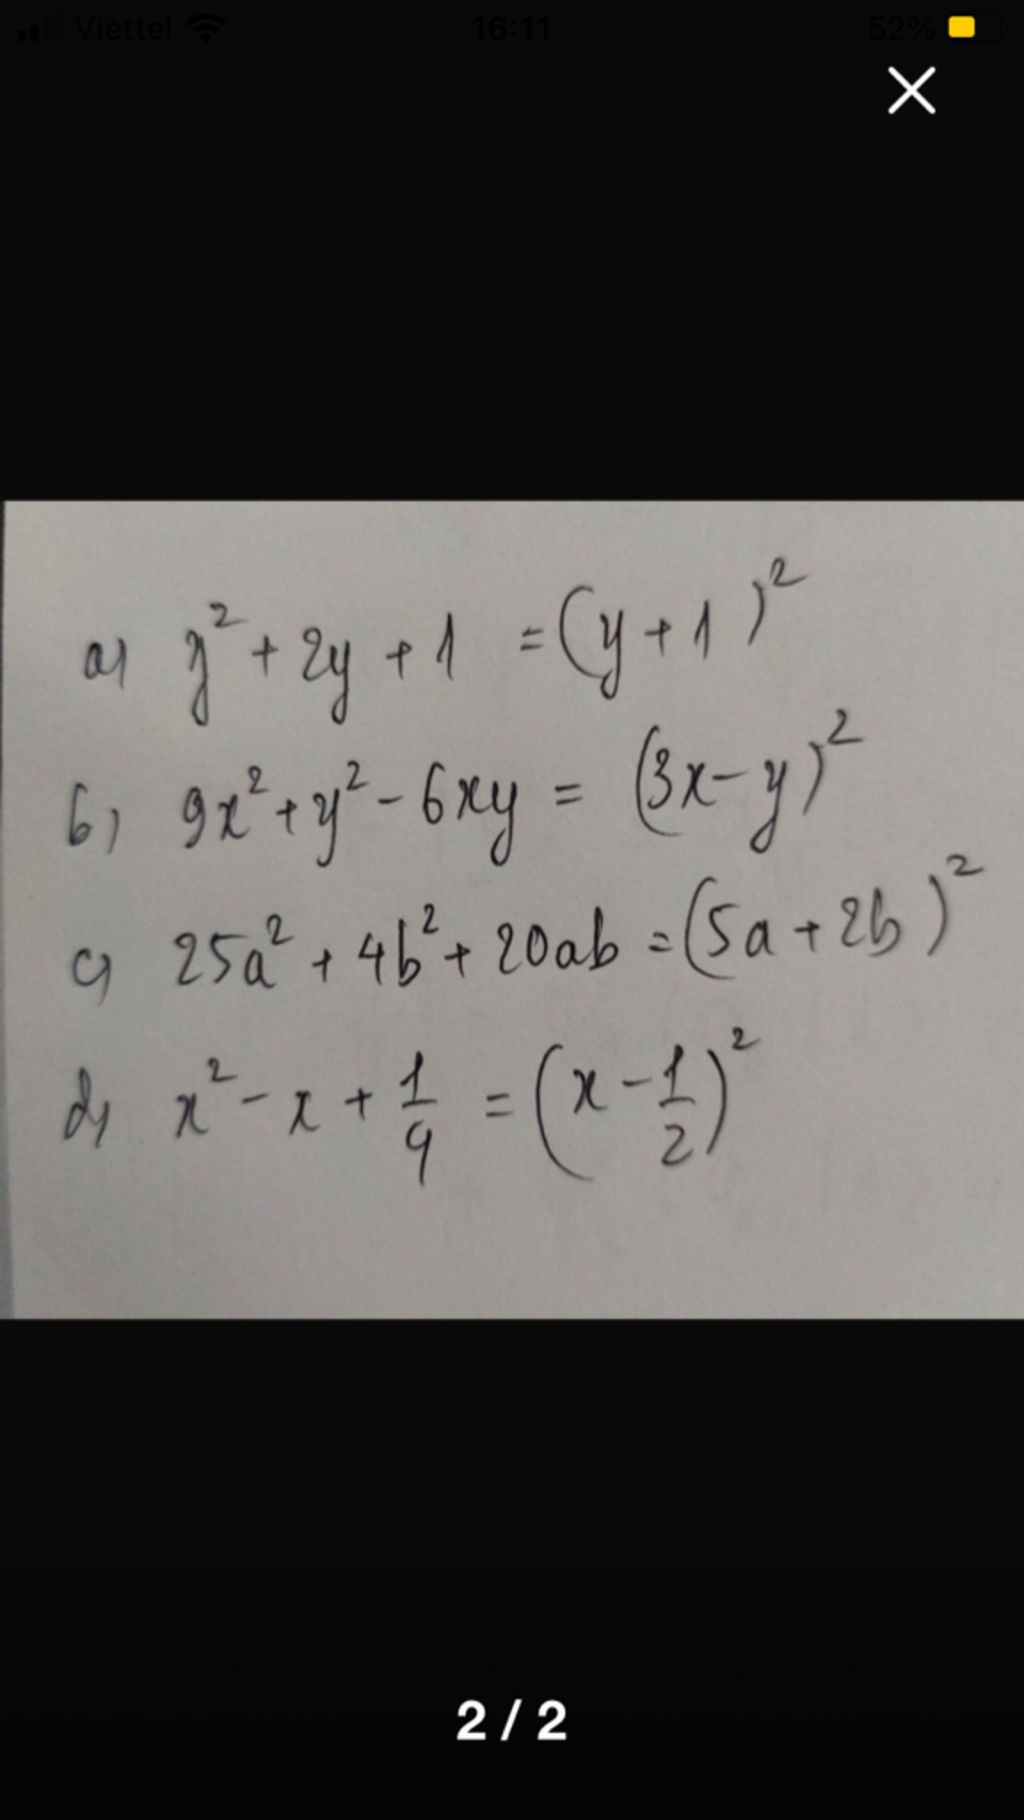 Viettel 16:11 52%
a) y² + 2y + 1 = (y + 1)²
b) 9x² + y² - 6xy = (3x - y)²
c) 25a² + 4b² + 20ab = (5a + 2b)²
d) x² - x + 1/4 = (x - 1/2)²
2 / 2